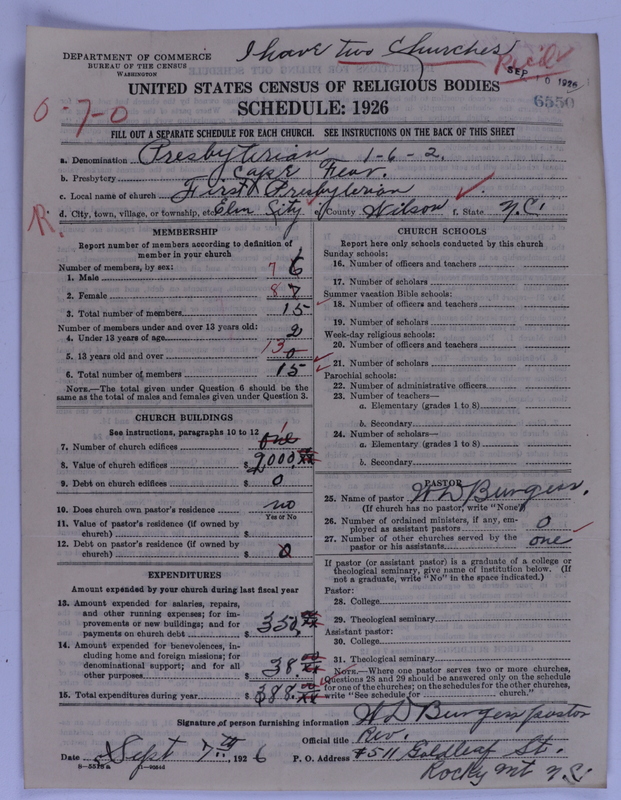 I have two Churches
Rec'd
DEPARTMENT OF COMMERCE
BUREAU OF THE CENSUS
WASHINGTON
SEP 10 1926
UNITED STATES CENSUS OF RELIGIOUS BODIES
6550
SCHEDULE: 1926
0-7-0
FILL OUT A SEPARATE SCHEDULE FOR EACH CHURCH. SEE INSTRUCTIONS ON THE BACK OF THIS SHEET
a. Denomination Presbyterian 1-6-2.
b. Presbytery Cape Fear.
c. Local name of church First Presbyterian
R.
d. City, town, village, or township, etc. Elm City e. County Wilson f. State N.C.
MEMBERSHIP
Report number of members according to definition of
member in your church
Number of members, by sex:
1. Male 7 6
2. Female 8 7
3. Total number of members 15
Number of members under and over 13 years old:
4. Under 13 years of age 2
5. 13 years old and over 13 0
6. Total number of members 15
NOTE.—The total given under Question 6 should be the
same as the total of males and females given under Question 3.
CHURCH BUILDINGS
See instructions, paragraphs 10 to 12
7. Number of church edifices one 1
8. Value of church edifices $2000. xx
9. Debt on church edifices $ 0
10. Does church own pastor's residence no
Yes or No
11. Value of pastor's residence (if owned by
church) $
12. Debt on pastor's residence (if owned by
church) $ 0
EXPENDITURES
Amount expended by your church during last fiscal year
13. Amount expended for salaries, repairs,
and other running expenses; for im-
provements or new buildings; and for
payments on church debt $350. xx
14. Amount expended for benevolences, in-
cluding home and foreign missions; for
denominational support; and for all
other purposes $38. xx
15. Total expenditures during year $388. xx
CHURCH SCHOOLS
Report here only schools conducted by this church
Sunday schools:
16. Number of officers and teachers
17. Number of scholars
Summer vacation Bible schools:
18. Number of officers and teachers
19. Number of scholars
Week-day religious schools:
20. Number of officers and teachers
21. Number of scholars
Parochial schools:
22. Number of administrative officers
23. Number of teachers—
a. Elementary (grades 1 to 8)
b. Secondary
24. Number of scholars—
a. Elementary (grades 1 to 8)
b. Secondary
PASTOR
25. Name of pastor W D Burgess.
(If church has no pastor, write "None")
26. Number of ordained ministers, if any, em-
ployed as assistant pastors 0
27. Number of other churches served by the
pastor or his assistants one
If pastor (or assistant pastor) is a graduate of a college or
theological seminary, give name of institution below. (If
not a graduate, write "No" in the space indicated.)
Pastor:
28. College
29. Theological seminary
Assistant pastor:
30. College
31. Theological seminary
NOTE.—Where one pastor serves two or more churches,
Questions 28 and 29 should be answered only on the schedule
for one of the churches; on the schedules for the other churches,
write "See schedule for church."
Signature of person furnishing information W D Burgess pastor
Official title Rev.
Date Sept 7th, 1926 P. O. Address #511 Goldleaf St.
Rocky Mt N.C.
8—5518a 11—9264d